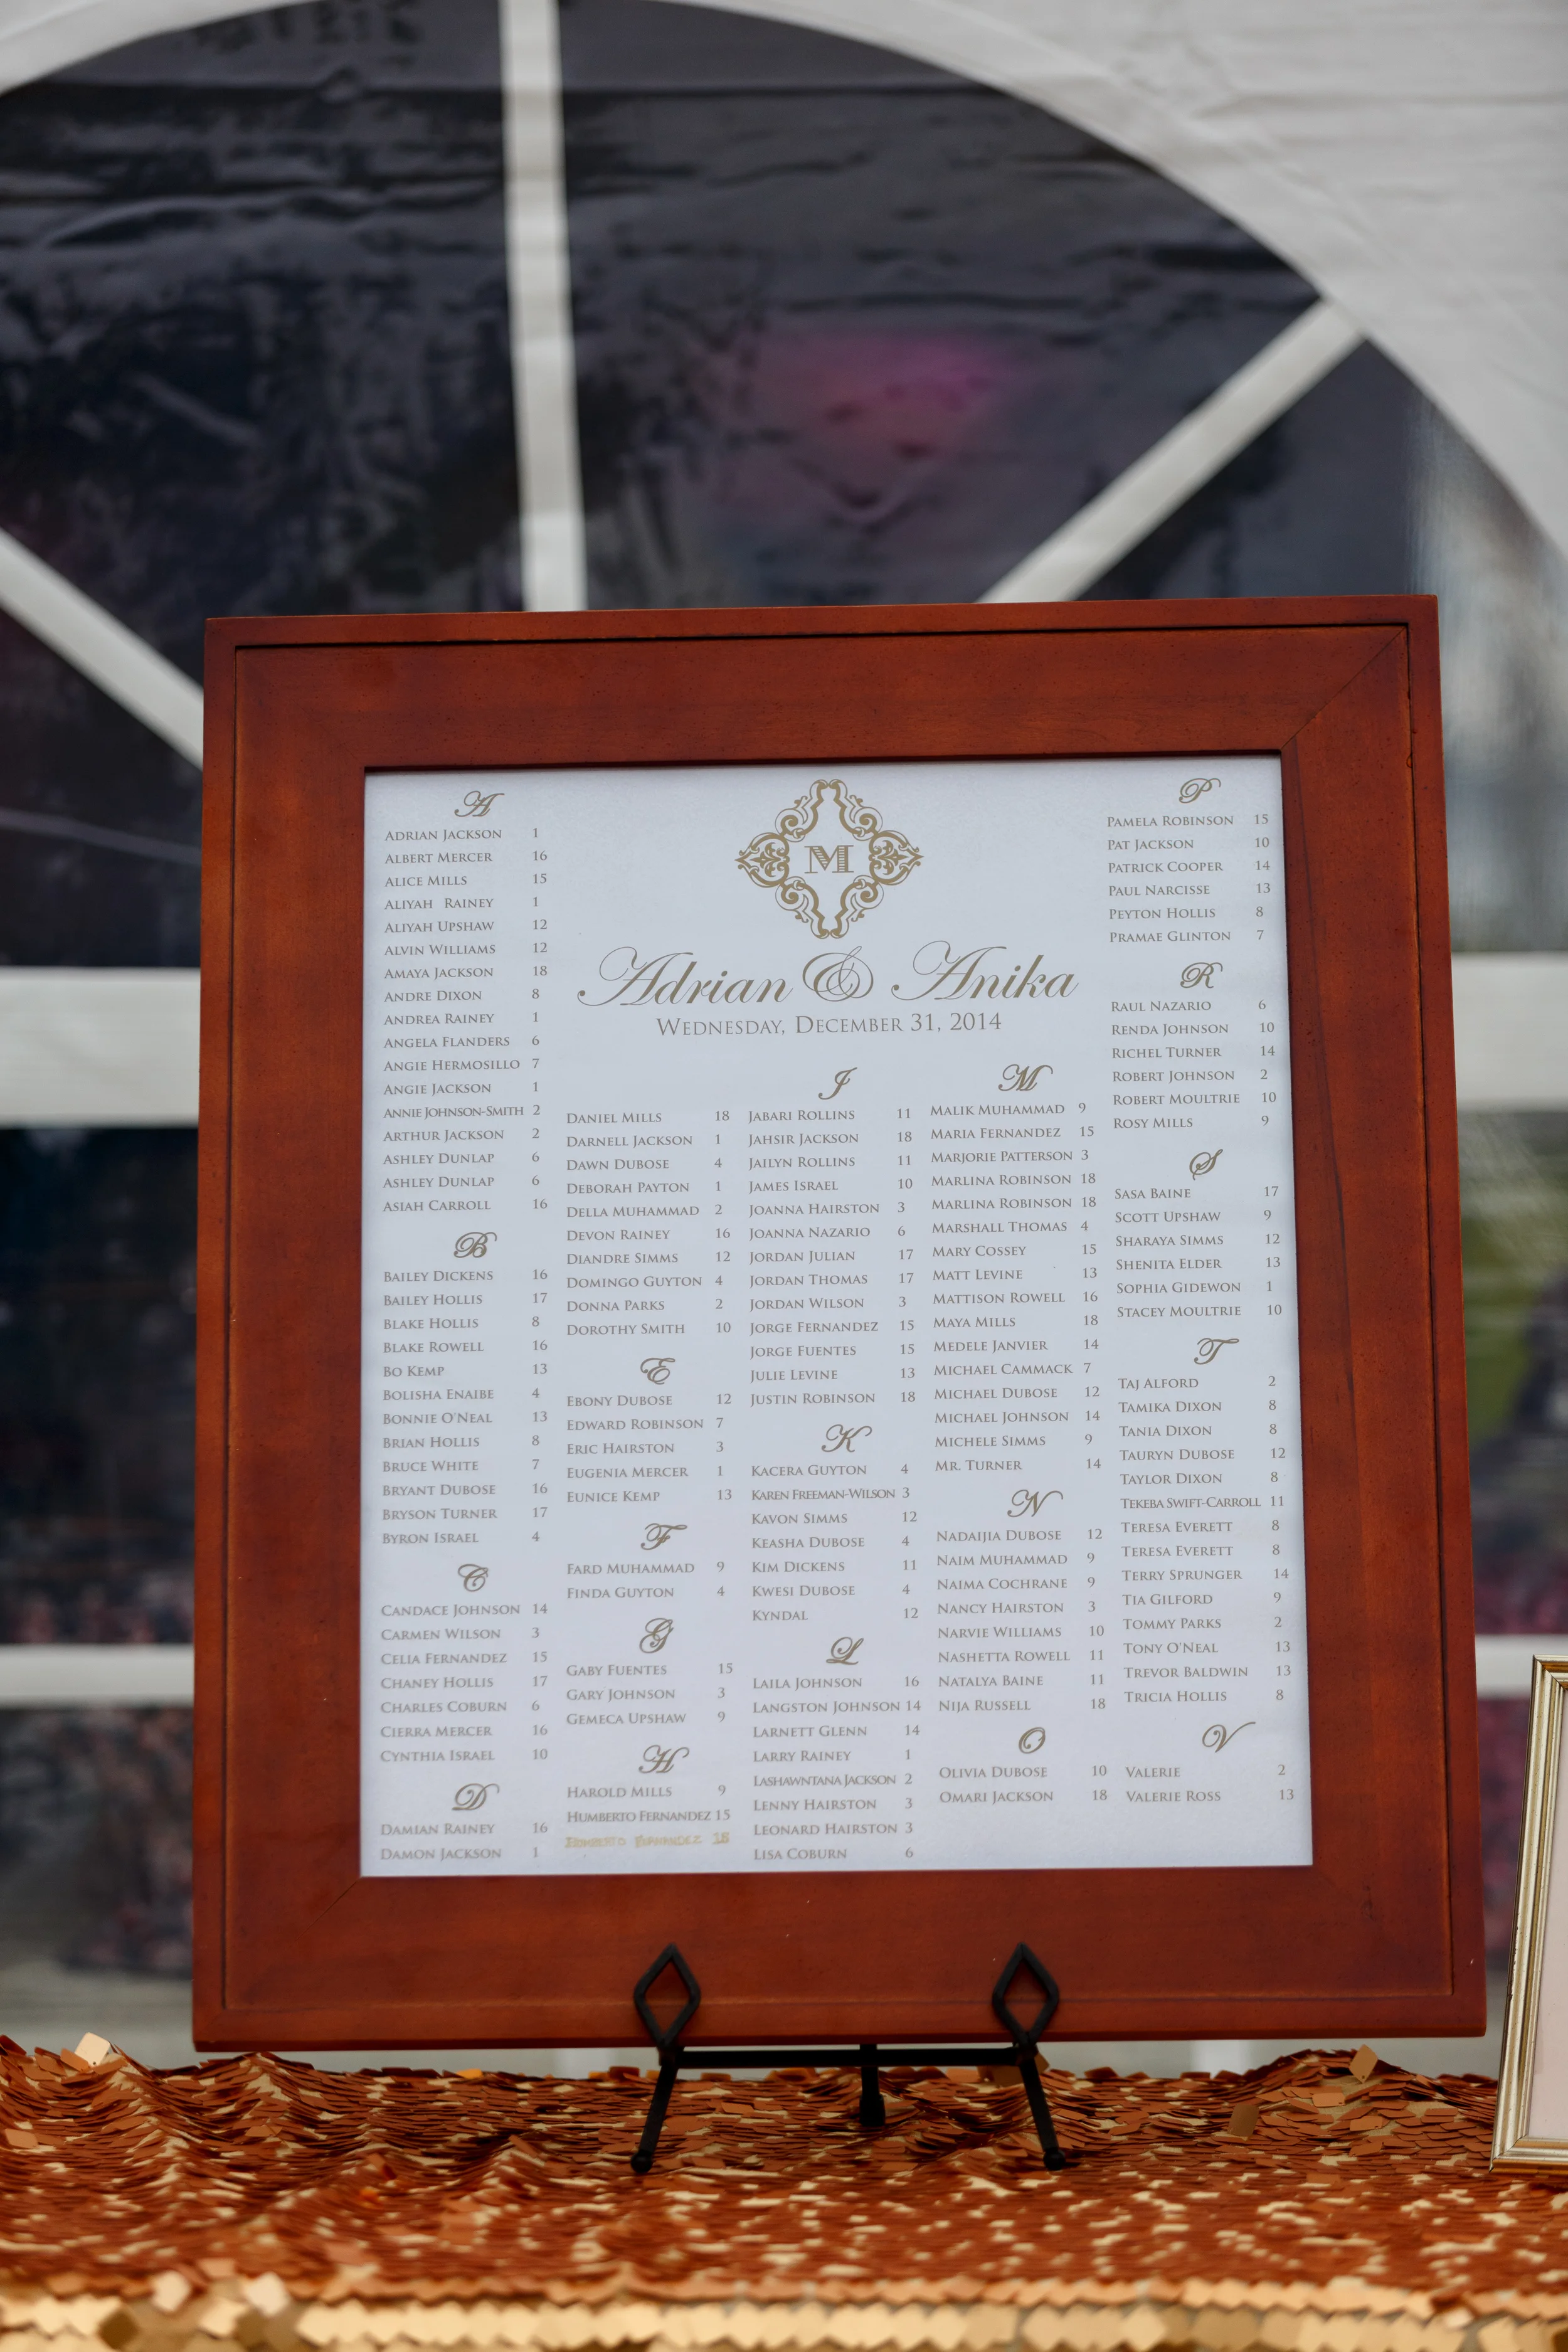 A
ADRIAN JACKSON 1
ALBERT MERCER 16
ALICE MILLS 15
ALIYAH RAINEY 1
ALIYAH UPSHAW 12
ALVIN WILLIAMS 12
AMAYA JACKSON 18
ANDRE DIXON 8
ANDREA RAINEY 1
ANGELA FLANDERS 6
ANGIE HERMOSILLO 7
ANGIE JACKSON 1
ANNIE JOHNSON-SMITH 2
ARTHUR JACKSON 2
ASHLEY DUNLAP 6
ASHLEY DUNLAP 6
ASIAH CARROLL 16
B
BAILEY DICKENS 16
BAILEY HOLLIS 17
BLAKE HOLLIS 8
BLAKE ROWELL 16
BO KEMP 13
BOLISHA ENAIBE 4
BONNIE O'NEAL 13
BRIAN HOLLIS 8
BRUCE WHITE 7
BRYANT DUBOSE 16
BRYSON TURNER 17
BYRON ISRAEL 4
C
CANDACE JOHNSON 14
CARMEN WILSON 3
CELIA FERNANDEZ 15
CHANEY HOLLIS 17
CHARLES COBURN 6
CIERRA MERCER 16
CYNTHIA ISRAEL 10
D
DAMIAN RAINEY 16
DAMON JACKSON 1
M
Adrian & Anika
WEDNESDAY, DECEMBER 31, 2014
DANIEL MILLS 18
DARNELL JACKSON 1
DAWN DUBOSE 4
DEBORAH PAYTON 1
DELLA MUHAMMAD 2
DEVON RAINEY 16
DIANDRE SIMMS 12
DOMINGO GUYTON 4
DONNA PARKS 2
DOROTHY SMITH 10
E
EBONY DUBOSE 12
EDWARD ROBINSON 7
ERIC HAIRSTON 3
EUGENIA MERCER 1
EUNICE KEMP 13
F
FARD MUHAMMAD 9
FINDA GUYTON 4
G
GABY FUENTES 15
GARY JOHNSON 3
GEMECA UPSHAW 9
H
HAROLD MILLS 9
HUMBERTO FERNANDEZ 15
HUMBERTO FERNANDEZ 15
J
JABARI ROLLINS 11
JAHSIR JACKSON 18
JAILYN ROLLINS 11
JAMES ISRAEL 10
JOANNA HAIRSTON 3
JOANNA NAZARIO 6
JORDAN JULIAN 17
JORDAN THOMAS 17
JORDAN WILSON 3
JORGE FERNANDEZ 15
JORGE FUENTES 15
JULIE LEVINE 13
JUSTIN ROBINSON 18
K
KACERA GUYTON 4
KAREN FREEMAN-WILSON 3
KAVON SIMMS 12
KEASHA DUBOSE 4
KIM DICKENS 11
KWESI DUBOSE 4
KYNDAL 12
L
LAILA JOHNSON 16
LANGSTON JOHNSON 14
LARNETT GLENN 14
LARRY RAINEY 1
LASHAWNTANA JACKSON 2
LENNY HAIRSTON 3
LEONARD HAIRSTON 3
LISA COBURN 6
M
MALIK MUHAMMAD 9
MARIA FERNANDEZ 15
MARJORIE PATTERSON 3
MARLINA ROBINSON 18
MARLINA ROBINSON 18
MARSHALL THOMAS 4
MARY COSSEY 15
MATT LEVINE 13
MATTISON ROWELL 16
MAYA MILLS 18
MEDELE JANVIER 14
MICHAEL CAMMACK 7
MICHAEL DUBOSE 12
MICHAEL JOHNSON 14
MICHELE SIMMS 9
MR. TURNER 14
N
NADAIJIA DUBOSE 12
NAIM MUHAMMAD 9
NAIMA COCHRANE 9
NANCY HAIRSTON 3
NARVIE WILLIAMS 10
NASHETTA ROWELL 11
NATALYA BAINE 11
NIJA RUSSELL 18
O
OLIVIA DUBOSE 10
OMARI JACKSON 18
P
PAMELA ROBINSON 15
PAT JACKSON 10
PATRICK COOPER 14
PAUL NARCISSE 13
PEYTON HOLLIS 8
PRAMAE GLINTON 7
R
RAUL NAZARIO 6
RENDA JOHNSON 10
RICHEL TURNER 14
ROBERT JOHNSON 2
ROBERT MOULTRIE 10
ROSY MILLS 9
S
SASA BAINE 17
SCOTT UPSHAW 9
SHARAYA SIMMS 12
SHENITA ELDER 13
SOPHIA GIDEWON 1
STACEY MOULTRIE 10
T
TAJ ALFORD 2
TAMIKA DIXON 8
TANIA DIXON 8
TAURYN DUBOSE 12
TAYLOR DIXON 8
TEKEBA SWIFT-CARROLL 11
TERESA EVERETT 8
TERESA EVERETT 8
TERRY SPRUNGER 14
TIA GILFORD 9
TOMMY PARKS 2
TONY O'NEAL 13
TREVOR BALDWIN 13
TRICIA HOLLIS 8
V
VALERIE 2
VALERIE ROSS 13